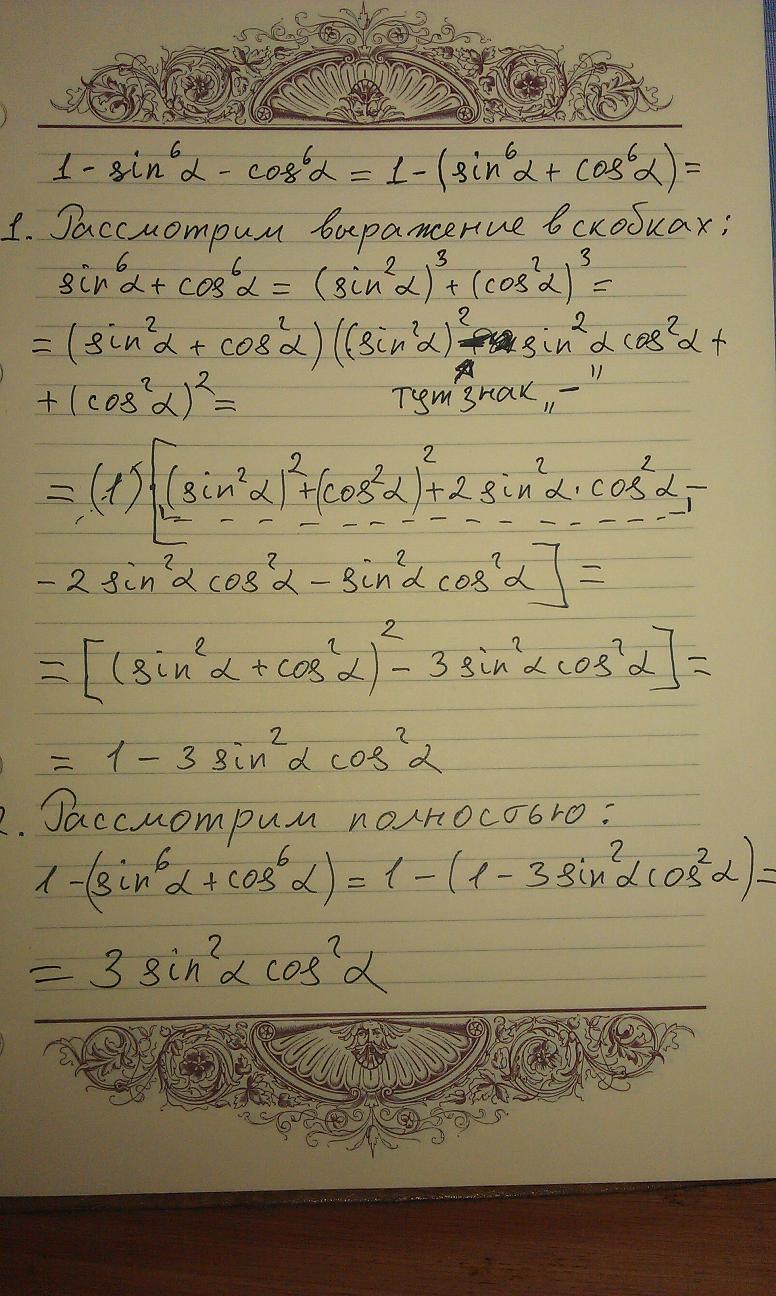 1 - sin⁶α - cos⁶α = 1 - (sin⁶α + cos⁶α) =
1. Рассмотрим выражение в скобках:
sin⁶α + cos⁶α = (sin²α)³ + (cos²α)³ =
= (sin²α + cos²α) ((sin²α)² sin²α cos²α +
+ (cos²α)² =
тут знак „-"
= (1) [(sin²α)² + (cos²α)² + 2 sin²α · cos²α -
- 2 sin²α cos²α - sin²α cos²α] =
= [(sin²α + cos²α)² - 3 sin²α cos²α] =
= 1 - 3 sin²α cos²α
2. Рассмотрим полностью:
1 - (sin⁶α + cos⁶α) = 1 - (1 - 3 sin²α cos²α) =
= 3 sin²α cos²α